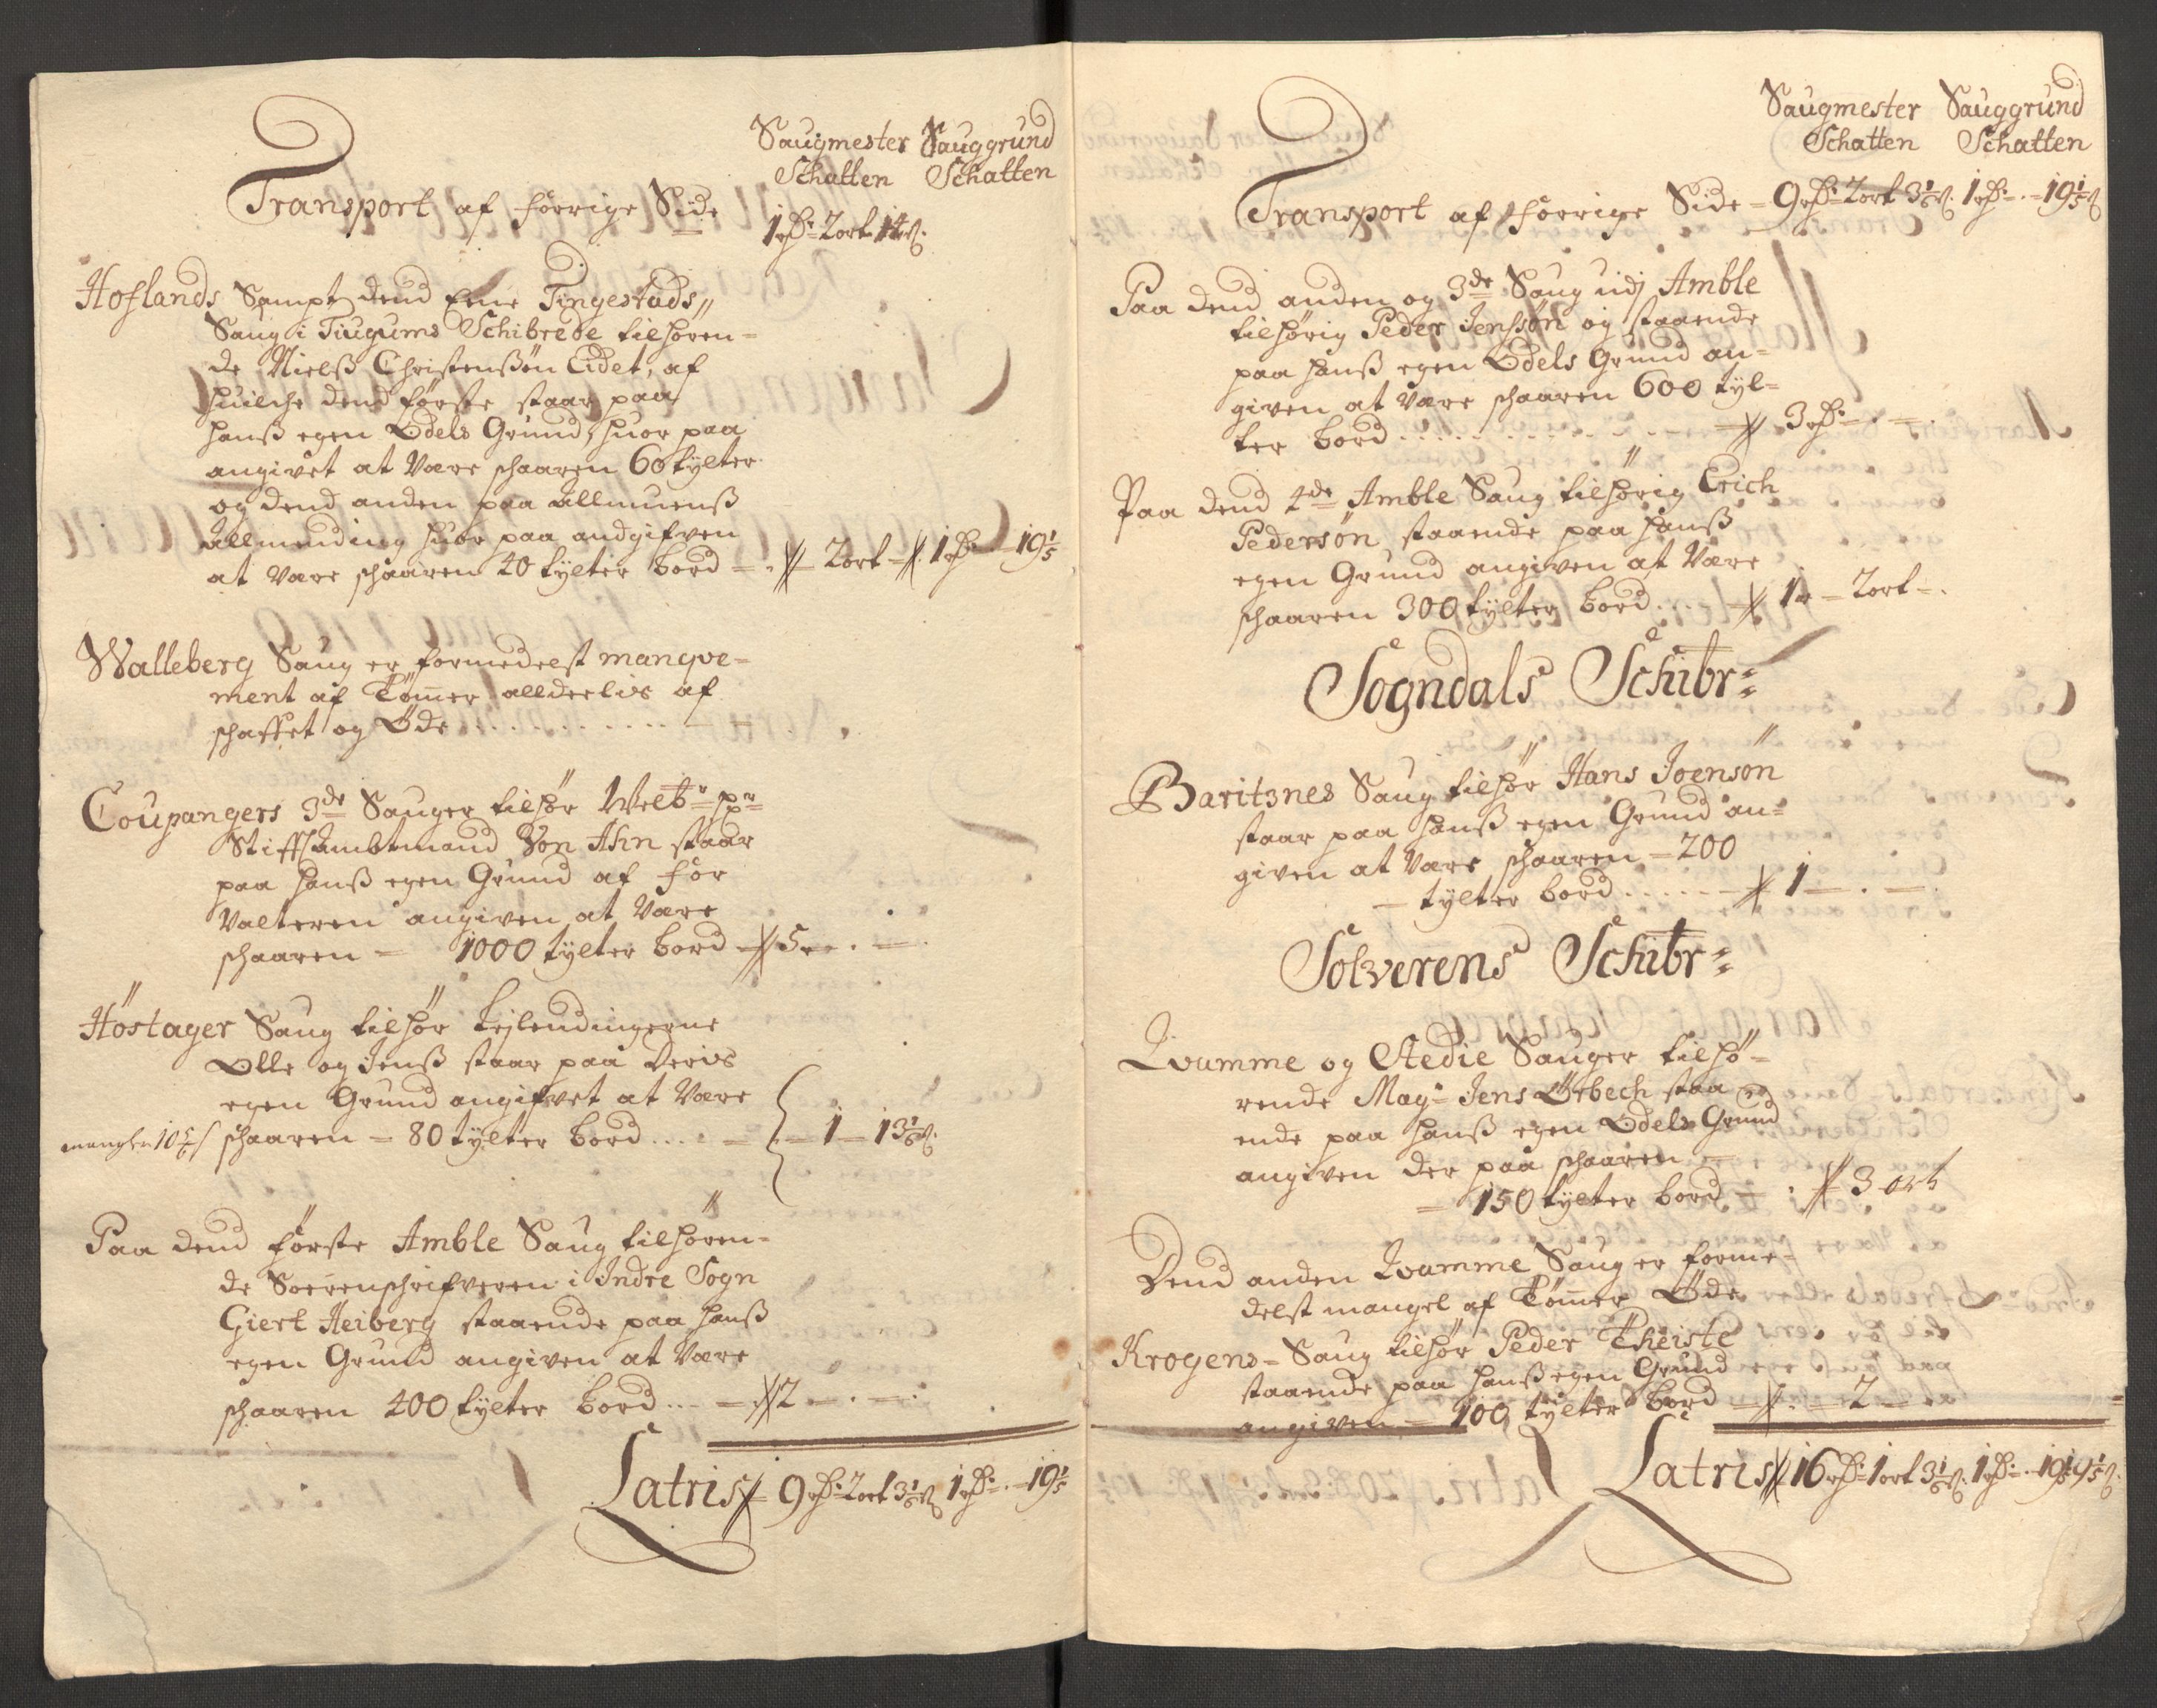 Saugmester Sauggrund
Schatten Schatten
Transport af forrige Side 1 rd: 2 ort 14 s.
Hoflands Sampt dend Eene Tingestads
Saug i Tiugums Schibrede tilhören=
de Nielß Christenßön Eidet, af
huilche dend förste staar paa
hanß egen Odels Grund, huor paa
angivet at Være schaaren 60 tylter
og dend anden paa Allmuenß
Allmending huor paa andgifven
at Være schaaren 40 tylter bord - 2 ort - 1 rd: - 19 1/5
Walleberg Saug er formedelst manqve=
ment af Tömer alldeelis af
schaffet og Öde
Coupangers 3de Sauger tilhör Welb: Hr:
Stifftambtmand Von Ahn staar
paa hanß egen Grund af for
Valteren angiven at Være
schaaren = 1000 tylter bord - 5 - . -
Höstager Saug tilhör
Olle og Jenß staar paa deris
egen Grund angifvet at Være
schaaren = 80 tylter bord .... - 1 - 13 1/6 s.
Paa dend förste Amble Saug tilhören=
de Soerenschrifveren i Indre Sogn
Giert Heiberg staaende paa hanß
egen Grund angiven at Være
schaaren 400 tylter bord ... - 2 - . - .
Latris 9 rd: 2 ort 3 1/6 s 1 rd: . - 19 1/5
Saugmester Sauggrund
Schatten Schatten
Transport af forrige Side - 9 rd: 2 ort 3 1/6 s. 1 rd: - . - 19 1/5 s
Paa dend anden og 3de Saug udj Amble
tilhörig Peder Jenssön og staaende
paa hanß egen Odels Grund an=
given at Være schaaren 600 tyl=
ter bord ........ - 3 rd: - . - .
Paa dend 4de Amble Saug tilhörig Erich
Pedersön staaende paa hanß
egen Grund angiven at Være
schaaren 300 tylter bord ... - 1 - 2 ort - .
Sogndals Schibr:
Baritznes Saug tilhör Hans Joensön
staar paa hanß egen Grund an=
given at Være schaaren = 200
- tylter bord ...... - 1 - . - .
Solverens Schibr:
Qvamme og Stedie Sauger tilhö=
rende Mag: Jens Örbech staa
ende paa hanß egen Odels Grund
angiven der paa schaaren -
= 150 tylter bord - . 3 ort
Dend anden Qvamme Saug er forme=
delst mangel af Tömer Öde
Krogens = Saug tilhör Peder Theiste
staaende paa hanß egen Grund
angiven = 100 tylter bord - . - 2 -
Latris 16 rd: 1 ort 3 1/6 s. 1 rd: . - 19 1/5 s.